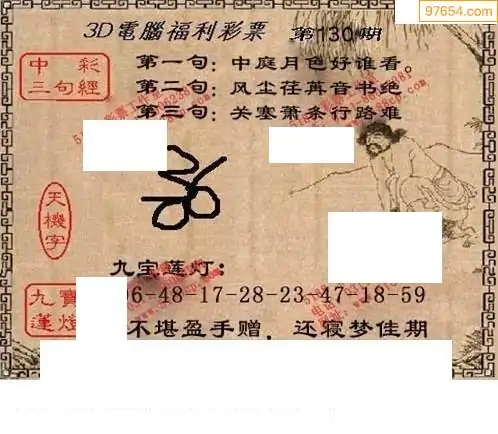 97654.com
3D電腦福利彩票 第130期
中彩三句經
第一句：中庭月色好谁看。
第二句：风尘荏苒音书绝
第三句：关塞萧条行路难
天機字
九宝莲灯：
九寶蓮燈
06-48-17-28-23 47-18-59
不堪盈手赠，还寝梦佳期